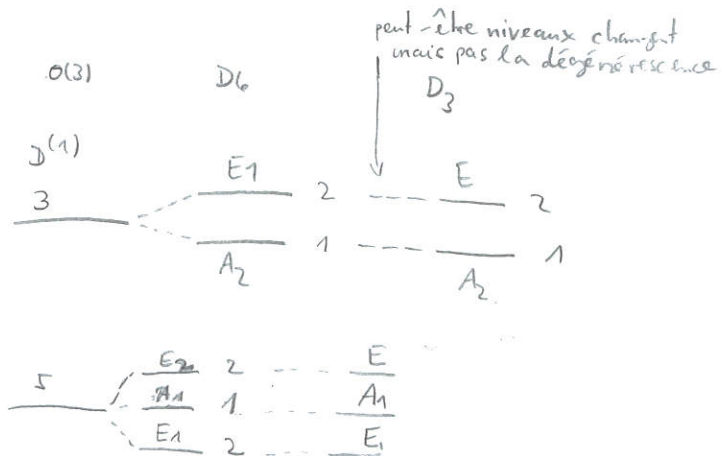 peut-être niveaux changent
mais pas la dégénérescence
O(3) D6 D3
D(1)
E1 E
3 2 2
1 1
A2 A2
E2 2 E
5 A1 1 A1
E1 2 E1